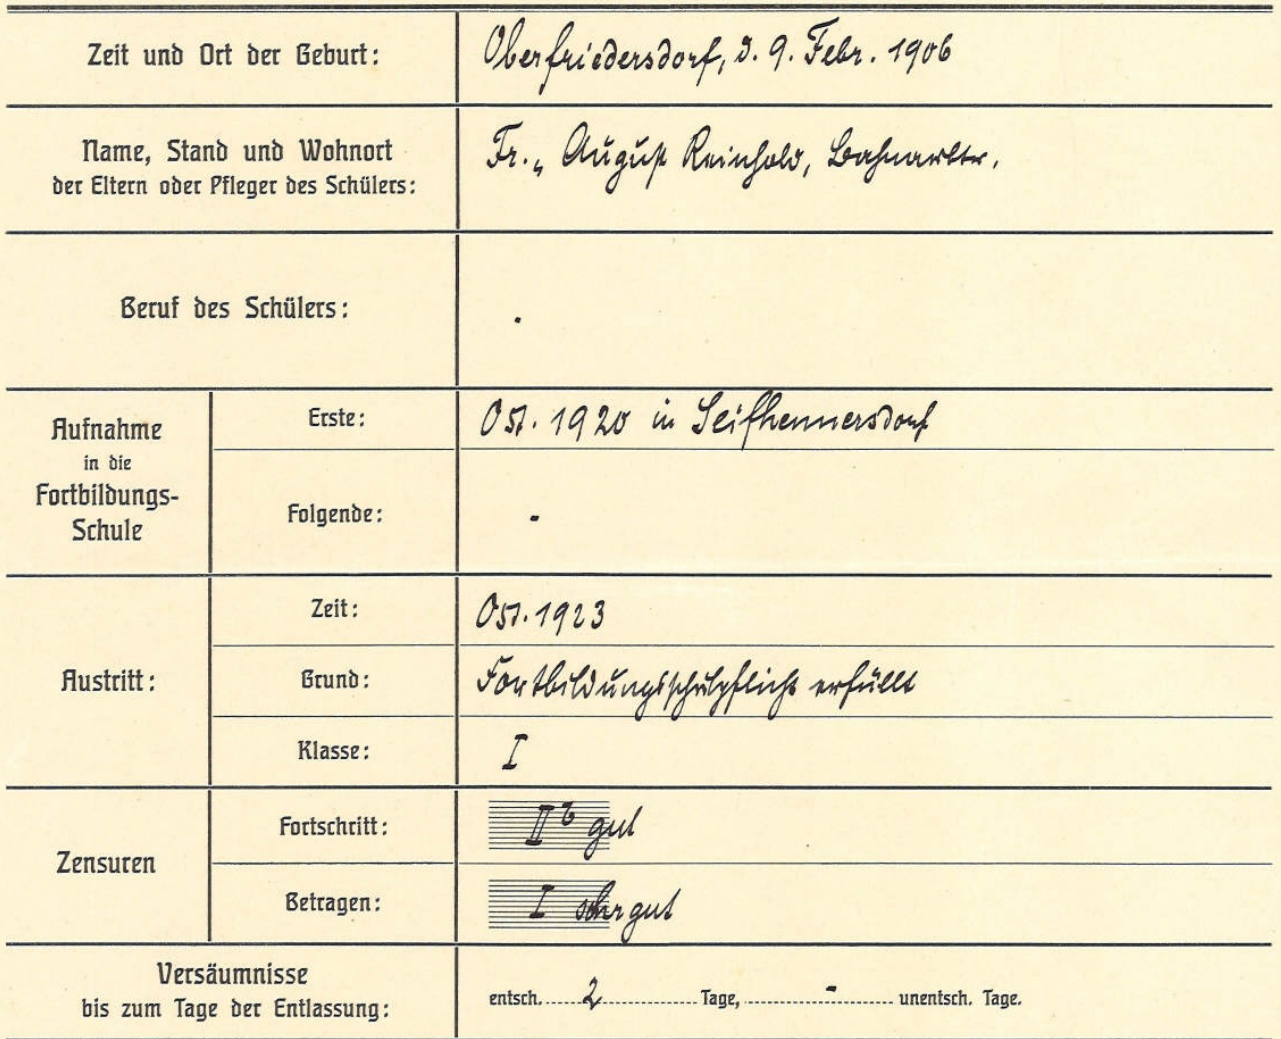 Zeit und Ort der Geburt: Oberfriedersdorf, d. 9. Febr. 1906
Name, Stand und Wohnort
der Eltern oder Pfleger des Schülers:
Fr., August Reinhold, Bahnarbtr.
Beruf des Schülers: -
Aufnahme
in die
Fortbildungs-
Schule
Erste: Ost. 1920 in Seifhennersdorf
Folgende: -
Austritt:
Zeit: Ost. 1923
Grund: Fortbildungsschulpflicht erfüllt
Klasse: I
Zensuren
Fortschritt: IIb gut
Betragen: I sehr gut
Versäumnisse
bis zum Tage der Entlassung:
entsch. 2 Tage, - unentsch. Tage.